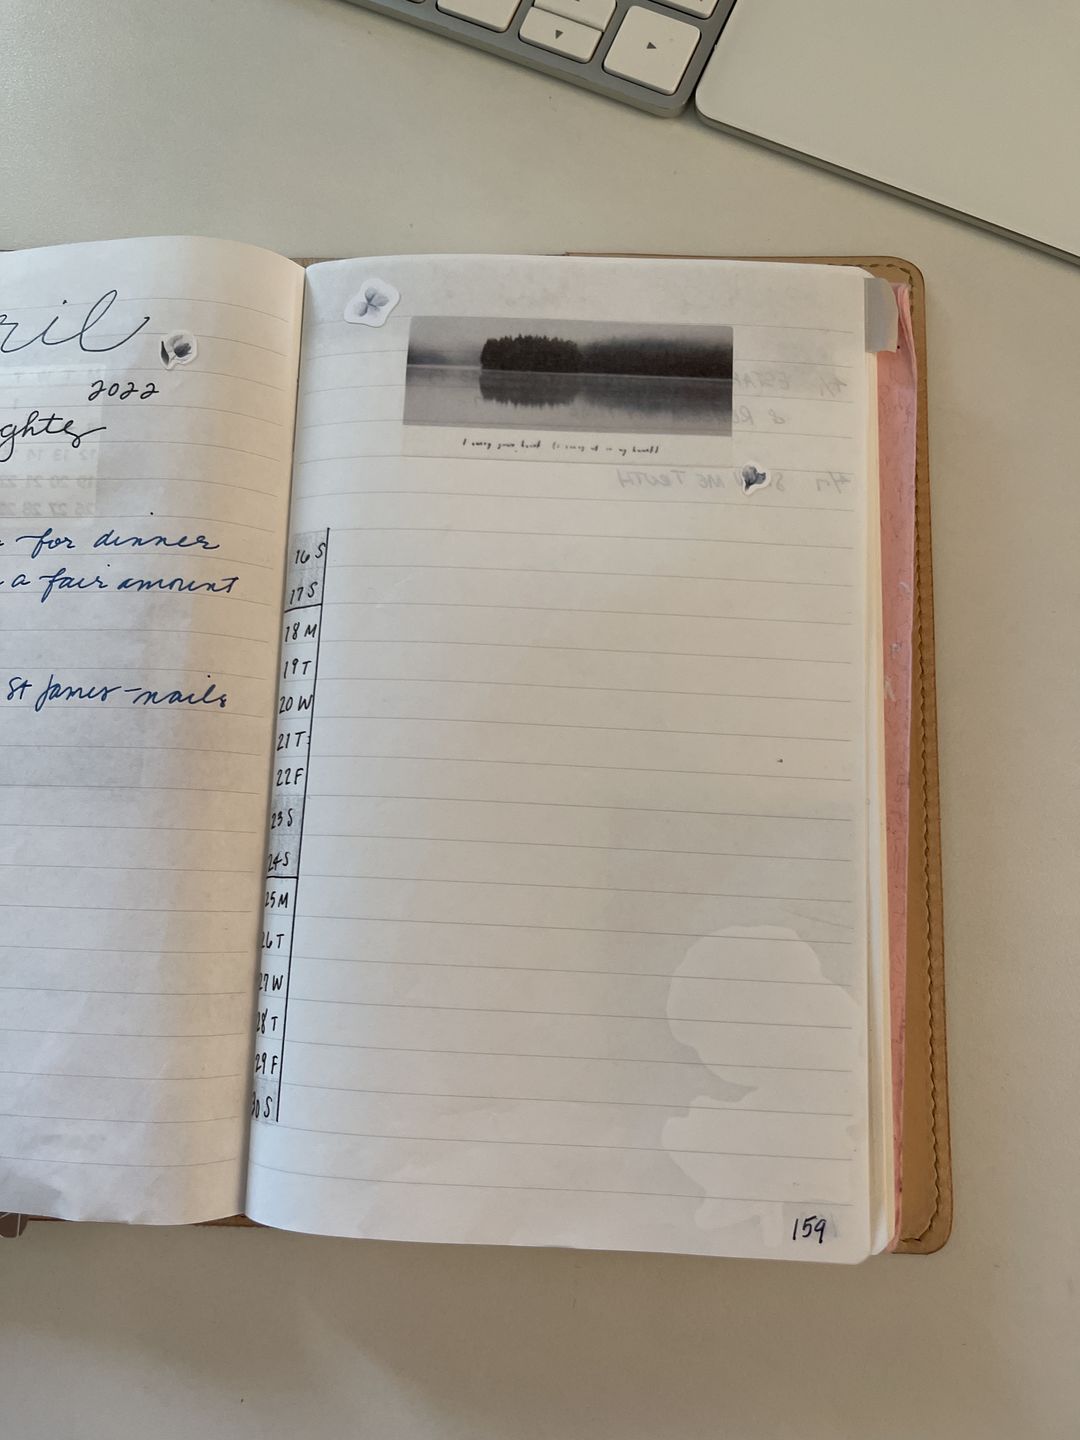 ril
2022
ghts
for dinner
a fair amount
St James - nails
I carry your heart (I carry it in my heart)
16 S
17 S
18 M
19 T
20 W
21 T
22 F
23 S
24 S
25 M
26 T
27 W
28 T
29 F
30 S
159